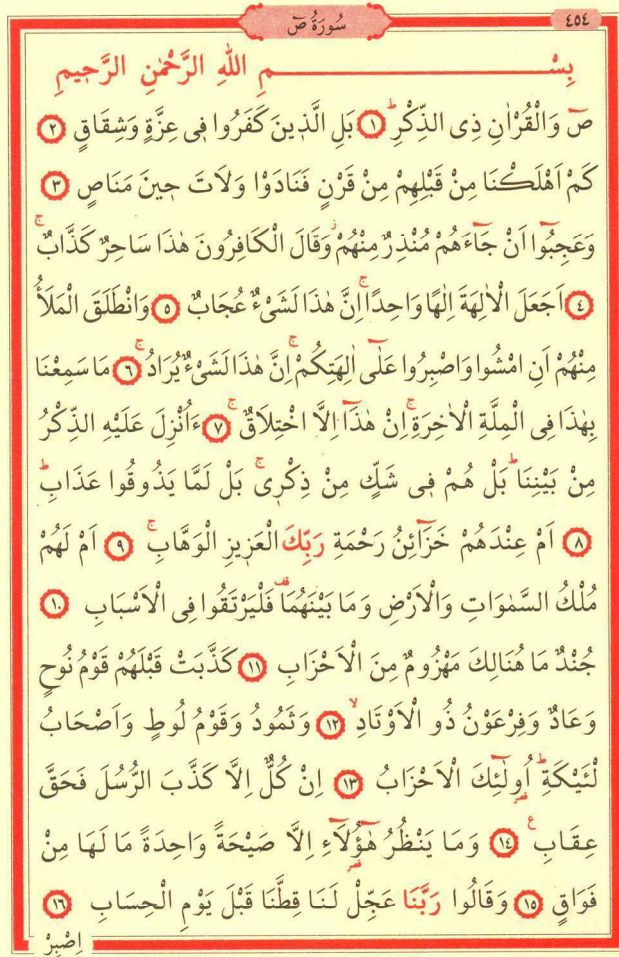 سُورَةُ صٓ
٤٥٤
بِسْمِ اللهِ الرَّحْمٰنِ الرَّحِيمِ
صٓ وَالْقُرْاٰنِ ذِى الذِّكْرِؕ ١ بَلِ الَّذ۪ينَ كَفَرُوا ف۪ى عِزَّةٍ وَشِقَاقٍ ٢
كَمْ اَهْلَكْنَا مِنْ قَبْلِهِمْ مِنْ قَرْنٍ فَنَادَوْا وَلَاتَ ح۪ينَ مَنَاصٍ ٣
وَعَجِبُٓوا اَنْ جَٓاءَهُمْ مُنْذِرٌ مِنْهُمْؗ وَقَالَ الْكَافِرُونَ هٰذَا سَاحِرٌ كَذَّابٌۚ
٤ اَجَعَلَ الْاٰلِهَةَ اِلٰهًا وَاحِدًاۚ اِنَّ هٰذَا لَشَیْءٌ عُجَابٌ ٥ وَانْطَلَقَ الْمَلَأُ
مِنْهُمْ اَنِ امْشُوا وَاصْبِرُوا عَلٰٓى اٰلِهَتِكُمْۚ اِنَّ هٰذَا لَشَیْءٌ يُرَادُۚ ٦ مَا سَمِعْنَا
بِهٰذَا فِى الْمِلَّةِ الْاٰخِرَةِۚ اِنْ هٰذَٓا اِلَّا اخْتِلَاقٌۚ ٧ ءَاُنْزِلَ عَلَيْهِ الذِّكْرُ
مِنْ بَيْنِنَاؕ بَلْ هُمْ ف۪ى شَكٍّ مِنْ ذِكْر۪ىۚ بَلْ لَمَّا يَذُوقُوا عَذَابِؕ
٨ اَمْ عِنْدَهُمْ خَزَٓائِنُ رَحْمَةِ رَبِّكَ الْعَز۪يزِ الْوَهَّابِۚ ٩ اَمْ لَهُمْ
مُلْكُ السَّمٰوَاتِ وَالْاَرْضِ وَمَا بَيْنَهُمَا۠ فَلْيَرْتَقُوا فِى الْاَسْبَابِ ١٠
جُنْدٌ مَا هُنَالِكَ مَهْزُومٌ مِنَ الْاَحْزَابِ ١١ كَذَّبَتْ قَبْلَهُمْ قَوْمُ نُوحٍ
وَعَادٌ وَفِرْعَوْنُ ذُو الْاَوْتَادِۙ ١٢ وَثَمُودُ وَقَوْمُ لُوطٍ وَاَصْحَابُ
لْـَٔيْكَةِؕ اُو۬لٰٓئِكَ الْاَحْزَابُ ١٣ اِنْ كُلٌّ اِلَّا كَذَّبَ الرُّسُلَ فَحَقَّ
عِقَابِ ع ١٤ وَمَا يَنْظُرُ هٰٓؤُ۬لَٓاءِ اِلَّا صَيْحَةً وَاحِدَةً مَا لَهَا مِنْ
فَوَاقٍ ١٥ وَقَالُوا رَبَّنَا عَجِّلْ لَنَا قِطَّنَا قَبْلَ يَوْمِ الْحِسَابِ ١٦
اِصْبِرْ